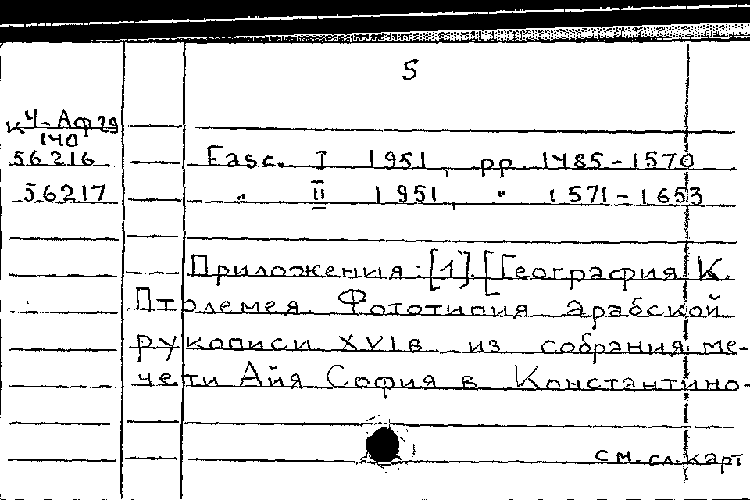 5
к Ч-Аф 29
140
56216 Fasc. I 1951, pp. 1485-1570
56217 " II 1951, " 1571-1653
Приложения: [1]. [География К.
Птолемея. Фототипия арабской
рукописи XVI в из собрания ме-
чети Айя София в Константино-
см. сл. карт